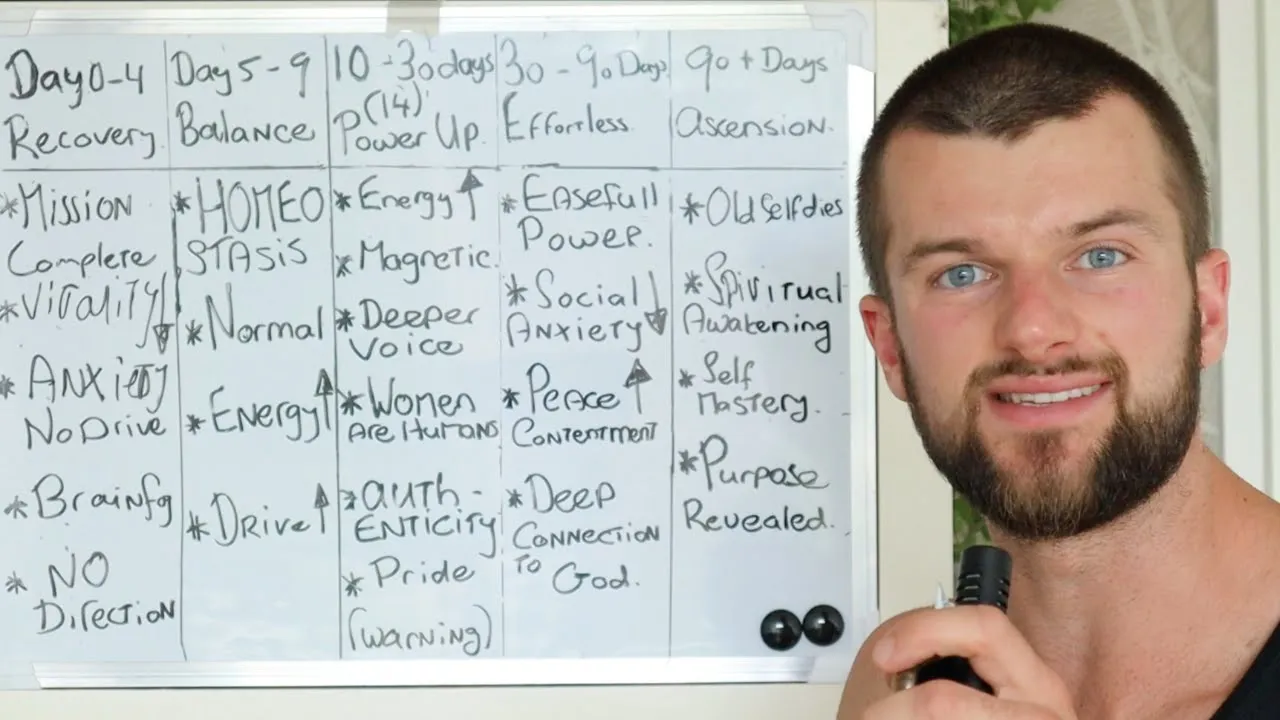 Day 0-4
Recovery
*Mission
Complete
*Vitality↓
* Anxiety
No Drive
* Brainfog
* NO
Direction
Day 5-9
Balance
*HOMEO
STASIS
*Normal
*Energy↑
*Drive↑
10-30days
(14)
Power Up.
*Energy↑
*Magnetic.
*Deeper
Voice
*Women
Are Humans
*AUTH-
ENTICITY
* Pride
(warning)
30-90 Days
Effortless.
*Easefull
Power.
*Social
Anxiety↓
*Peace↑
Contentment
*Deep
Connection
To God.
90+Days
Ascension.
*Old Self dies
*Spiritual
Awakening
*Self
Mastery.
*Purpose
Revealed.